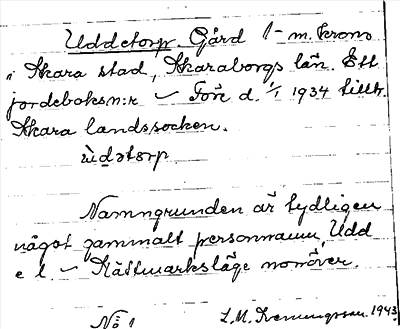 Uddetorp. Gård 1 m. krono
i Skara stad, Skaraborgs län. Ett
jordeboksn:r – Före d. 1/1 1934 tillh.
Skara landssocken.
ùdətorp
Namngrunden är tydligen
något gammalt personnamn, Udd
e l. – Kästmarksläge norröver.
No 1
L.M. 1943